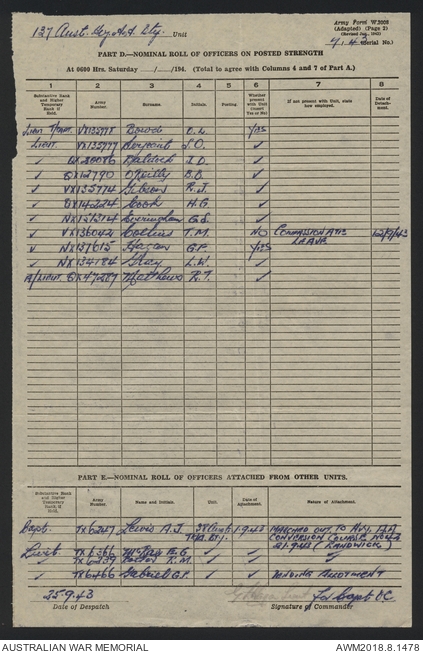 137 Aust. Hy A.A. Bty. Unit
Army Form W.3008
(Adapted) (Page 2)
(Revised Jan., 1943)
(Serial No.)
PART D.—NOMINAL ROLL OF OFFICERS ON POSTED STRENGTH
At 0600 Hrs. Saturday ____/____/194. (Total to agree with Columns 4 and 7 of Part A.)
1 2 3 4 5 6 7 8
Substantive Rank and Higher Temporary Rank if Held. Army Number. Surname. Initials. Posting. Whether present with Unit (insert Yes or No) If not present with Unit, state how employed. Date of Detachment.
VX135778 YES
Lieut. VX135777 J.O. ✓
✓ J.D. ✓
✓ QX12790 O'Reilly B.B. ✓
✓ VX135774 Gibson R.J. ✓
✓ QX14224 Cook H.G. ✓
✓ NX131314 Everingham G.S. ✓
✓ VX136042 Collins T.M. NO COMPASSIONATE LEAVE 12/9/43
✓ NX137615 G.P. YES
✓ NX134184 Gray L.W. ✓
A/LIEUT. QX47287 Mathews R.T. ✓
PART E.—NOMINAL ROLL OF OFFICERS ATTACHED FROM OTHER UNITS.
Substantive Rank and Higher Temporary Rank if Held. Army Number. Name and Initials. Unit. Date of Attachment. Nature of Attachment.
Capt. TX6247 Lewis A.J. 1.9.43 MARCHED OUT TO HVY. A.A.
CONVERSION COURSE
21.9.43 (RANDWICK)
Lieut. TX6366 ✓ ✓ ✓
✓ R.M. ✓ ✓
✓ TX6466 Gabriel G.P. ✓ ✓ PENDING ALLOTMENT
25.9.43 Capt OC
Date of Despatch Signature of Commander
AUSTRALIAN WAR MEMORIAL AWM2018.8.1478